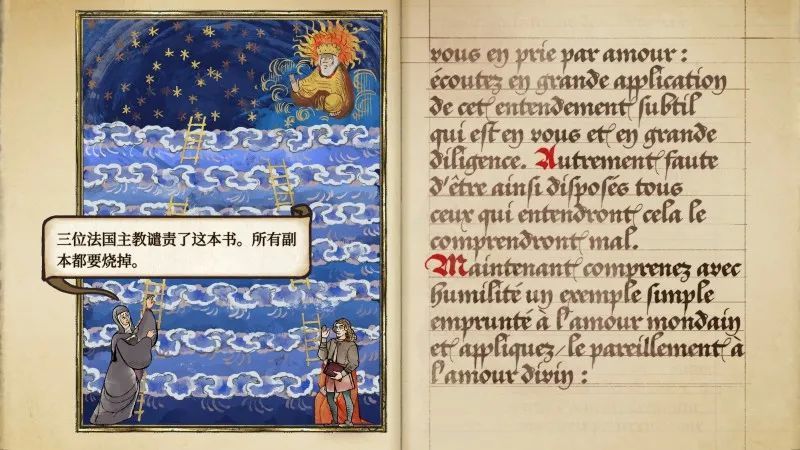 三位法国主教谴责了这本书。所有副
本都要烧掉。
vous en prie par amour :
écoutez en grande application
de cet entendement subtil
qui est en vous et en grande
diligence. Autrement faute
d'être ainsi disposés tous
ceux qui entendront cela le
comprendront mal.
Maintenant comprenez avec
humilité un exemple simple
emprunté à l'amour mondain
et appliquez/le pareillement à
l'amour divin :